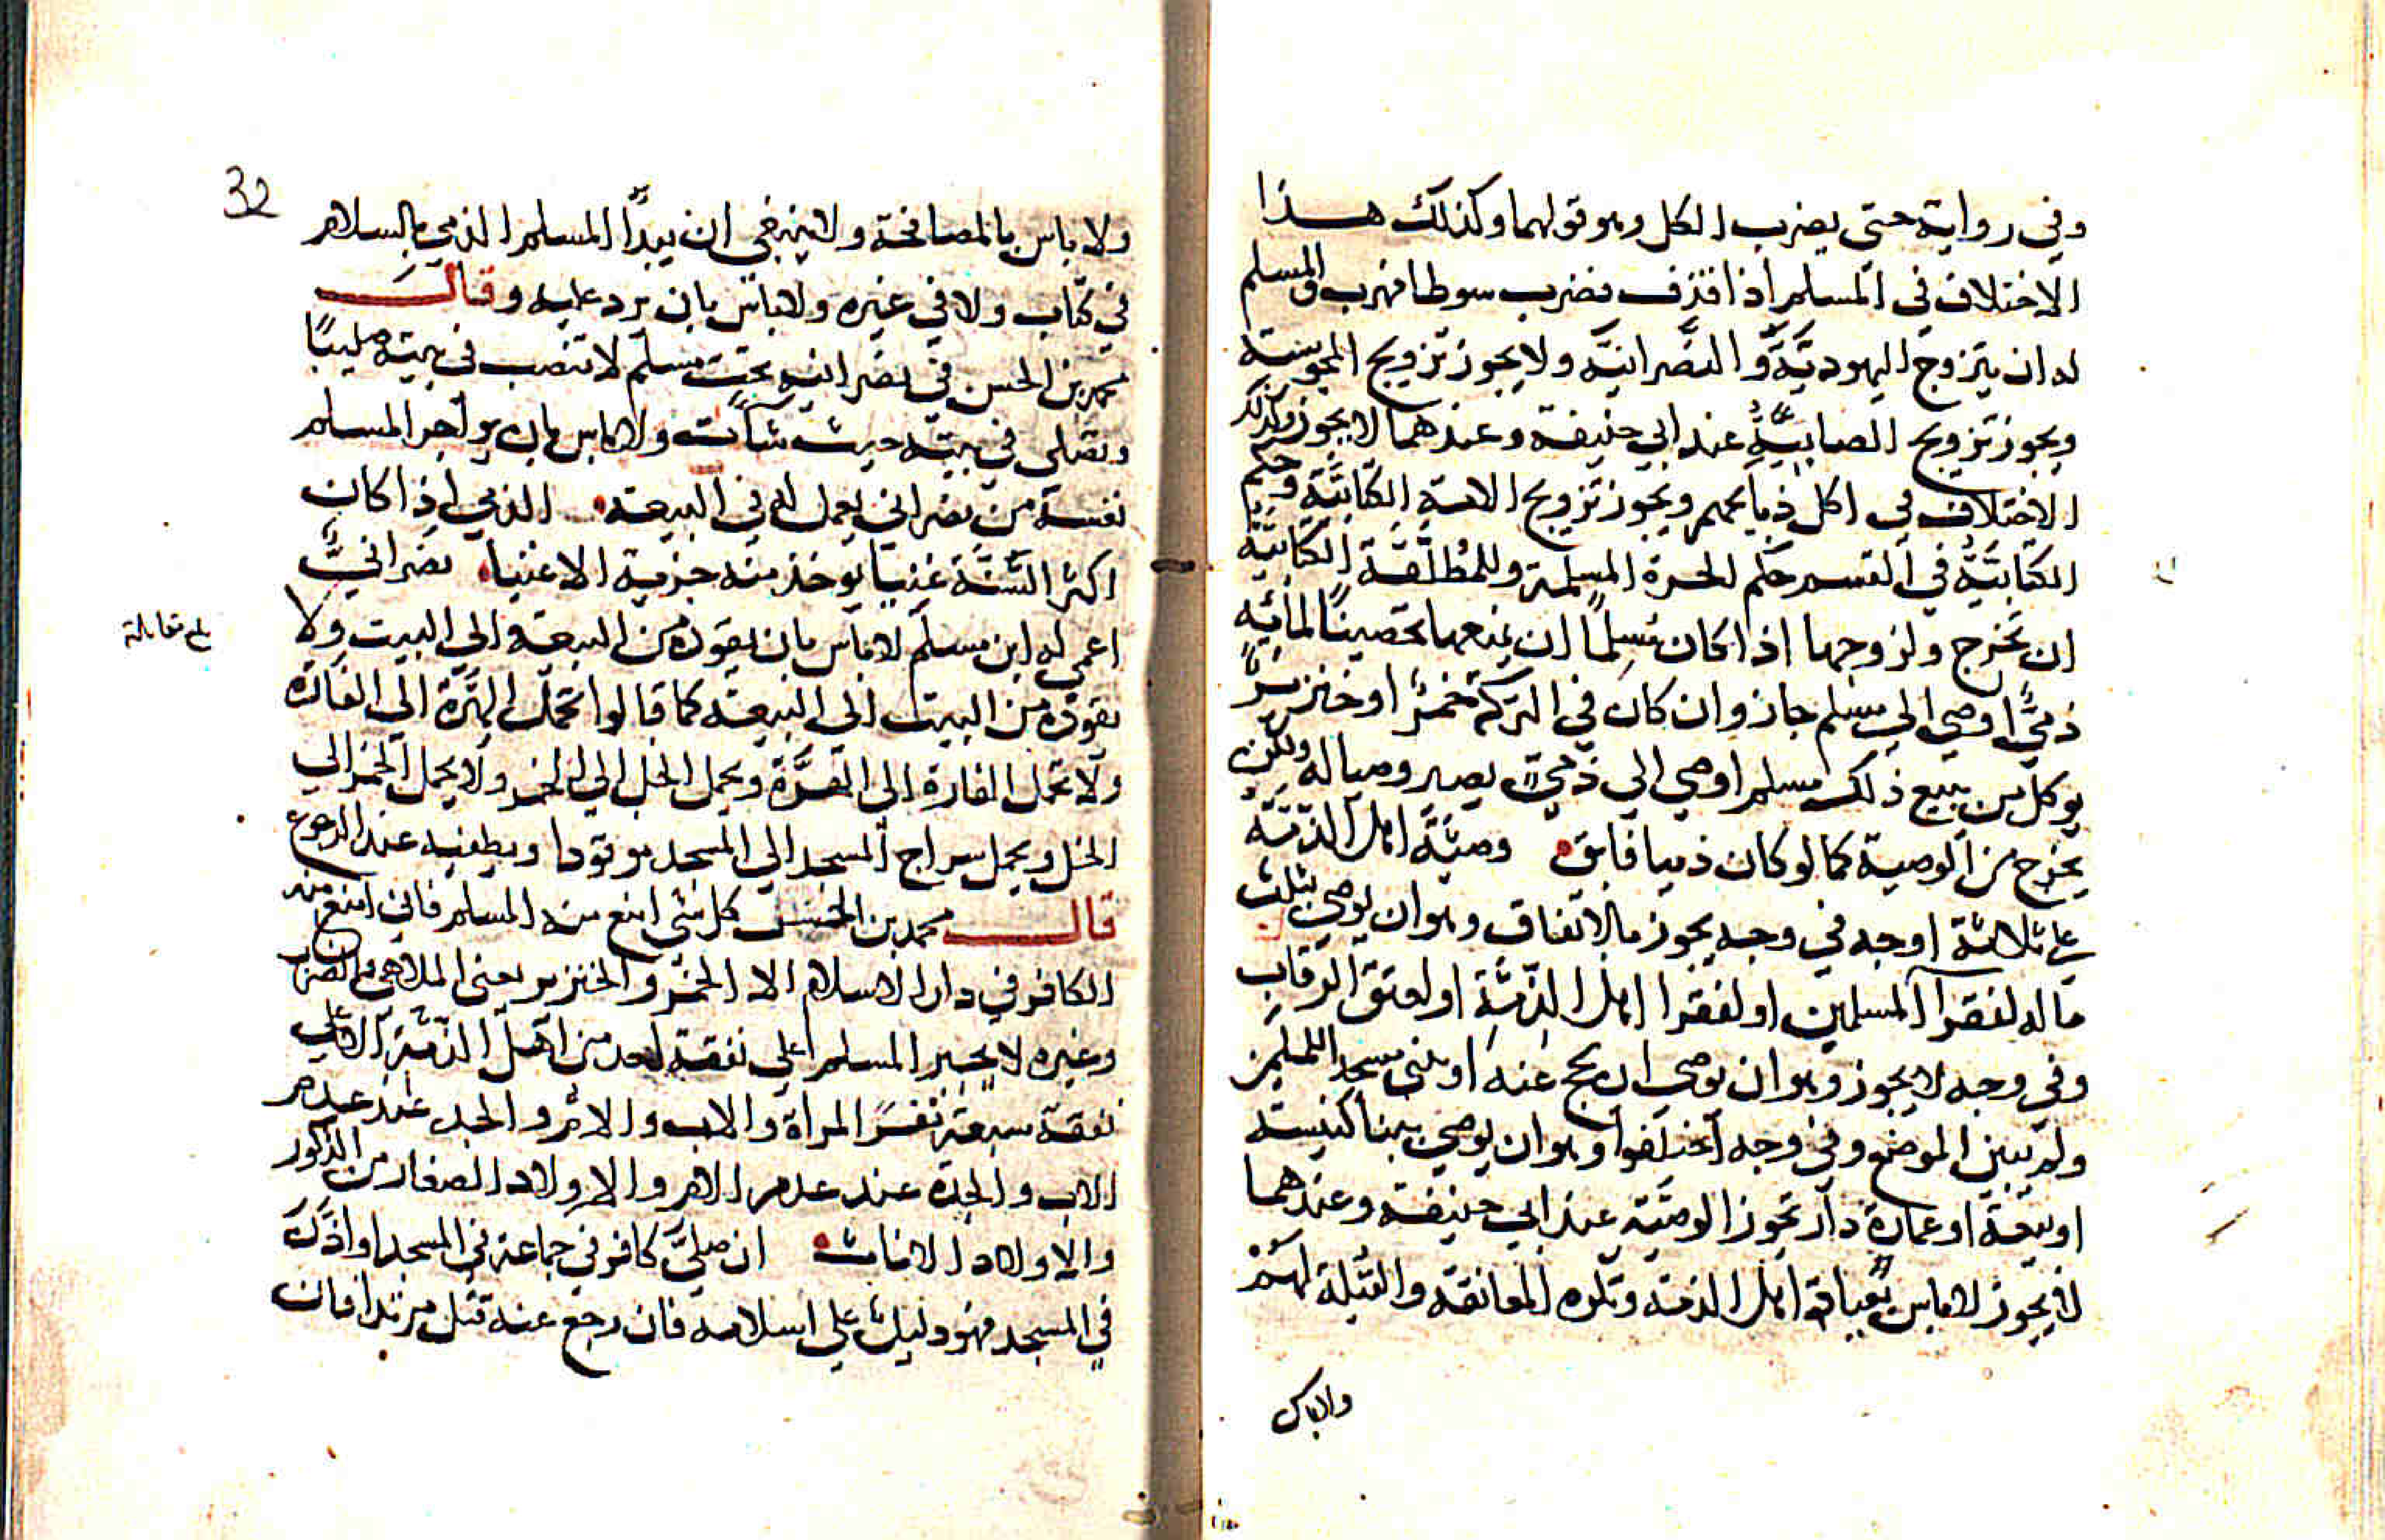 وفي رواية حتى يضرب الكل وهو قولهما وكذلك هذا
الاختلاف في المسلم اذا قذف فضرب سوطا فهرب والمسلم
له ان يتزوج اليهودية والنصرانية ولا يجوز تزويج المجوسية
ويجوز تزويج الصابية عند ابي حنيفة وعندهما لا يجوز وكذلك
الاختلاف في اكل ذبايحهم ويجوز تزويج الامة الكتابية وحكم
الكتابية في القسم حكم الحرة المسلمة وللمطلقة الكتابية
ان تخرج ولزوجها اذا كان مسلما ان يمنعها تحصينا لمائه
ذمي اوصي الي مسلم جاز وان كان في التركة خمر او خنزير
يوكل من يبيع ذلك مسلم اوصي الي ذمي يصير وصيا له ولكن
يخرج من الوصية كما لو كان ذميا فاسق وصية اهل الذمة
علي ثلاثة اوجه في وجه يجوز بالاتفاق وهو ان يوصي بثلث
ماله لفقرآ المسلمين او لفقرا اهل الذمة او لعتق الرقاب
وفي وجه لا يجوز وهو ان يوصي ان يحج عنه او يبنى مسجد للمسلمين
ولم يبين الموضع وفي وجه اختلفوا وهو ان يوصي ببنا كنيسة
او بيعة او عمارة دار تجوز الوصية عند ابي حنيفة وعندهما
لا يجوز لا باس بعيادة اهل الذمة وتكره المعانقة والقبلة لهم
ولا باس
32
ولا باس بالمصافحة ولا ينبغي ان يبدأ المسلم الذمي بالسلام
في كتاب ولا في غيره ولا باس بان يرد عليه وقال
محمد بن الحسن في نصرانية تحت مسلم لا تنصب في بيته صليبا
وتصلي في بيته حيث شآت ولا باس بان يواجر المسلم
نفسه من نصراني يعمل له في البيعة الذمي اذا كان
اكثر السنة غنيا يوخذ منه جزية الاغنيا نصراني
اعمي له ابن مسلم لا باس بان يقوده من البيعة الي البيت ولا
يقوده من البيت الي البيعة كما قالوا تحمل الهرة الي الفارة
ولا تحمل الفارة الي الهرة ويحمل الخل الي الخمر ولا يحمل الخمر الي
الخل ويحمل سراج المسجد الي المسجد موقودا ويطفيه عند الرجوع
قال محمد بن الحسن كل شي امنع منه المسلم فاني امنع منه
الكافر في دار الاسلام الا الخمر والخنزير يعني الملاهي
وغيره لا يجبر المسلم علي نفقة احد من اهل الذمة الا علي
نفقة سبعة نفر المراة والاب والام والجد عند عدم
الاب والجدة عند عدم الام والاولاد الصغار من الذكور
والاولاد الاناث ان صلي كافر في جماعة في المسجد او اذن
في المسجد فهو دليل علي اسلامه فان رجع عنه قتل مرتدا فان
بلغ مقابلة